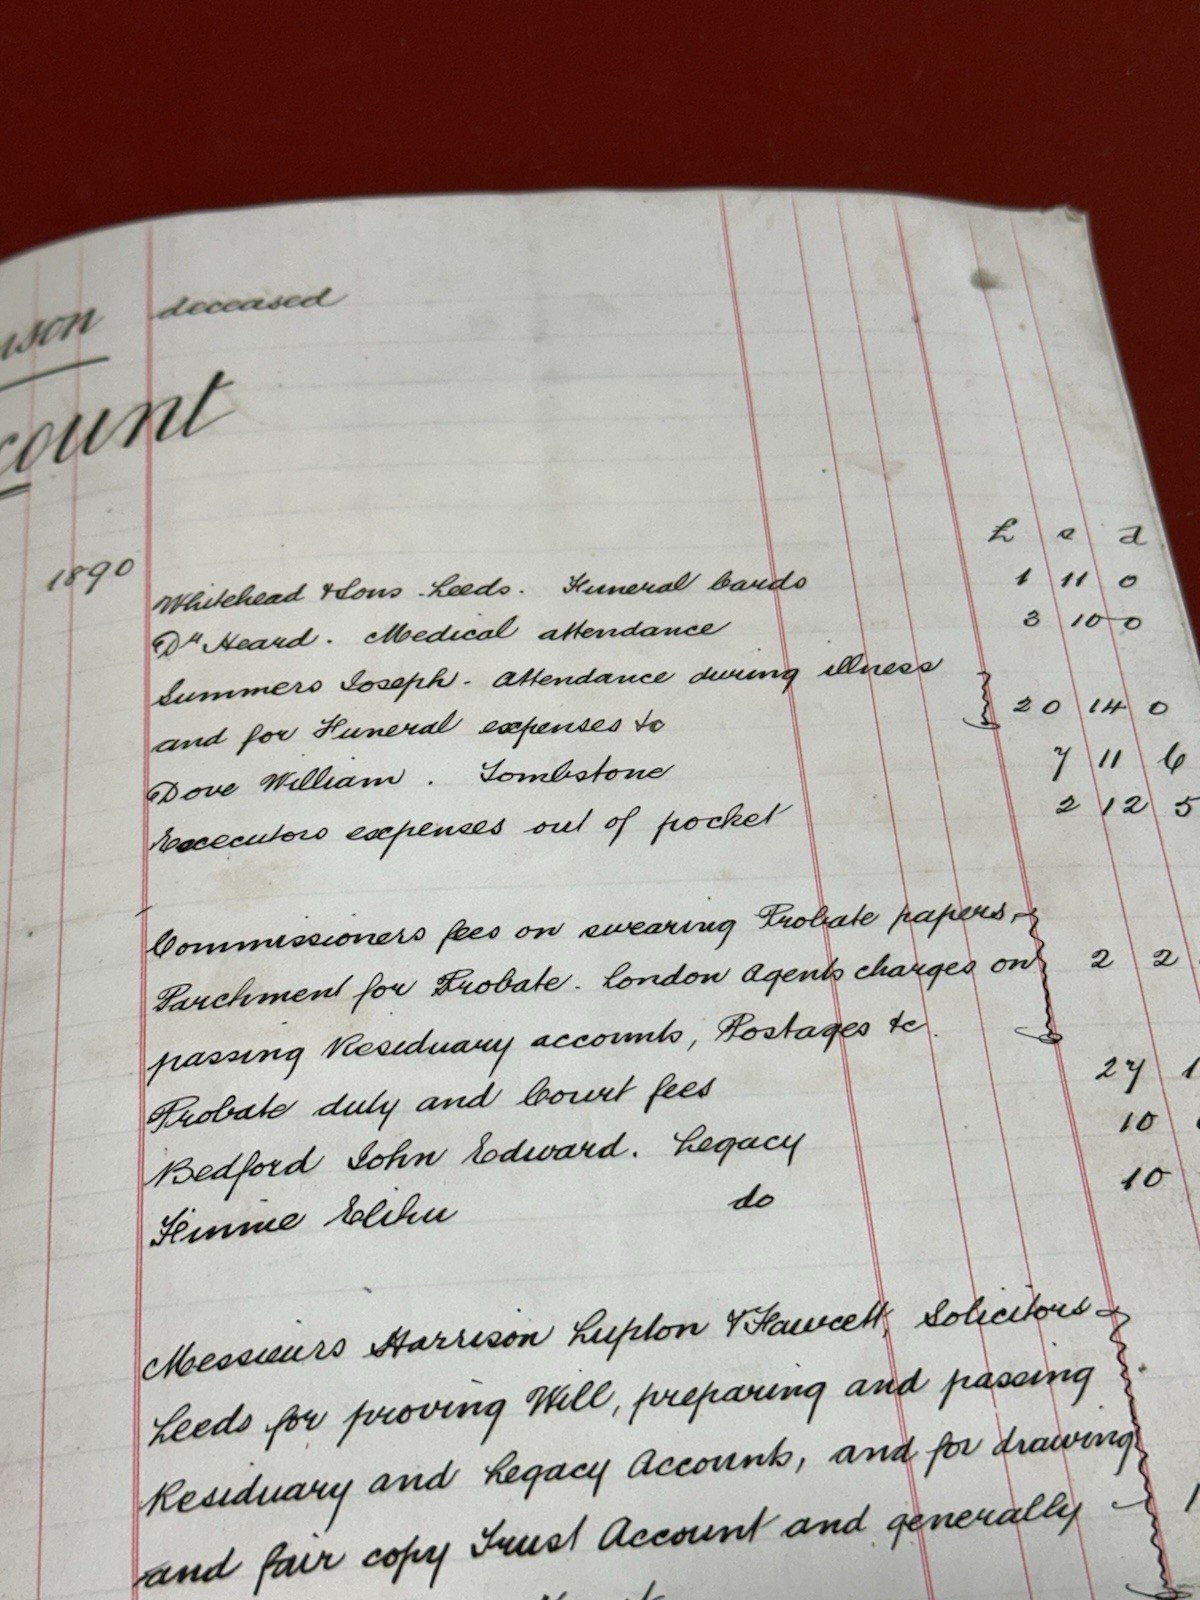 deceased
count
£ s d
1890
Whitehead & Sons. Leeds. Funeral Cards 1 11 0
Dr Heard. Medical attendance 3 10 0
Summers Joseph. Attendance during illness
and for Funeral expenses to 20 14 0
Dove William. Tombstone 7 11 6
Executors expenses out of pocket 2 12 5
Commissioners fees on swearing Probate papers,
Parchment for Probate. London Agents charges on 2 2
passing Residuary accounts, Postages &c.
Probate duty and Court fees 27 1
Bedford John Edward. Legacy 10
Elihu do 10
Messieurs Harrison Lupton & Fawcett, Solicitors
Leeds for proving Will, preparing and passing
Residuary and Legacy Accounts, and for drawing
and fair copy Trust Account and generally